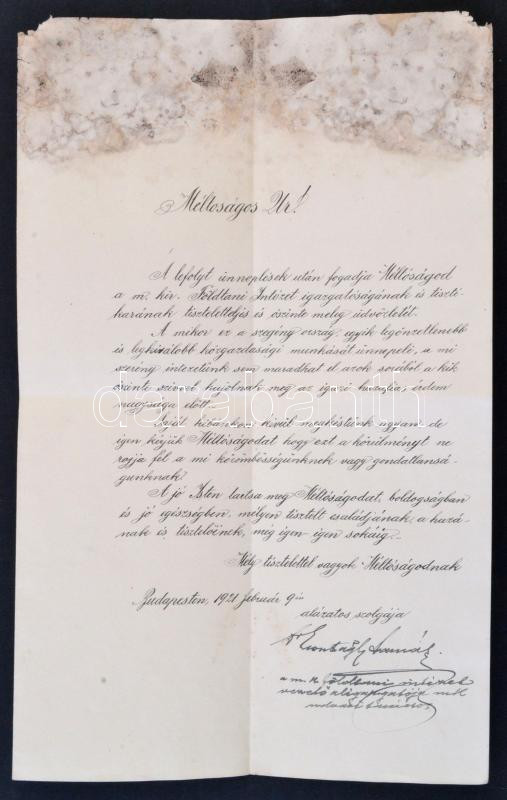 Méltoságos Ur!
A lefolyt ünneplések után fogadja Méltóságod
a m. kir. Földtani Intézet igazgatóságának és tiszti-
karának tiszteletteljes és őszinte meleg üdvözletét.
A mikor ez a szegény ország egyik legönzetlenebb
és legkiválóbb közgazdasági munkását ünnepelé, a mi
szerény intézetünk sem maradhat el azok sorából a kik
őszinte szívvel hajolnak meg az igazi érdem
nagysága előtt.
hibánkon kívül megkéstünk ugyan, de
igen kérjük Méltóságodat hogy ezt a körülményt ne
rójja fel a mi közömbösségünknek vagy gondatlansá-
gunknak.
A jó Isten tartsa meg Méltóságodat, boldogságban
és jó egészségben, mélyen tisztelt családjának, a hazá-
nak és tisztelőinek, még igen-igen sokáig.
Mély tisztelettel vagyok Méltóságodnak
Budapesten, 1921 február 9-én
alázatos szolgája
a m. k. földtani intézet
darabanth